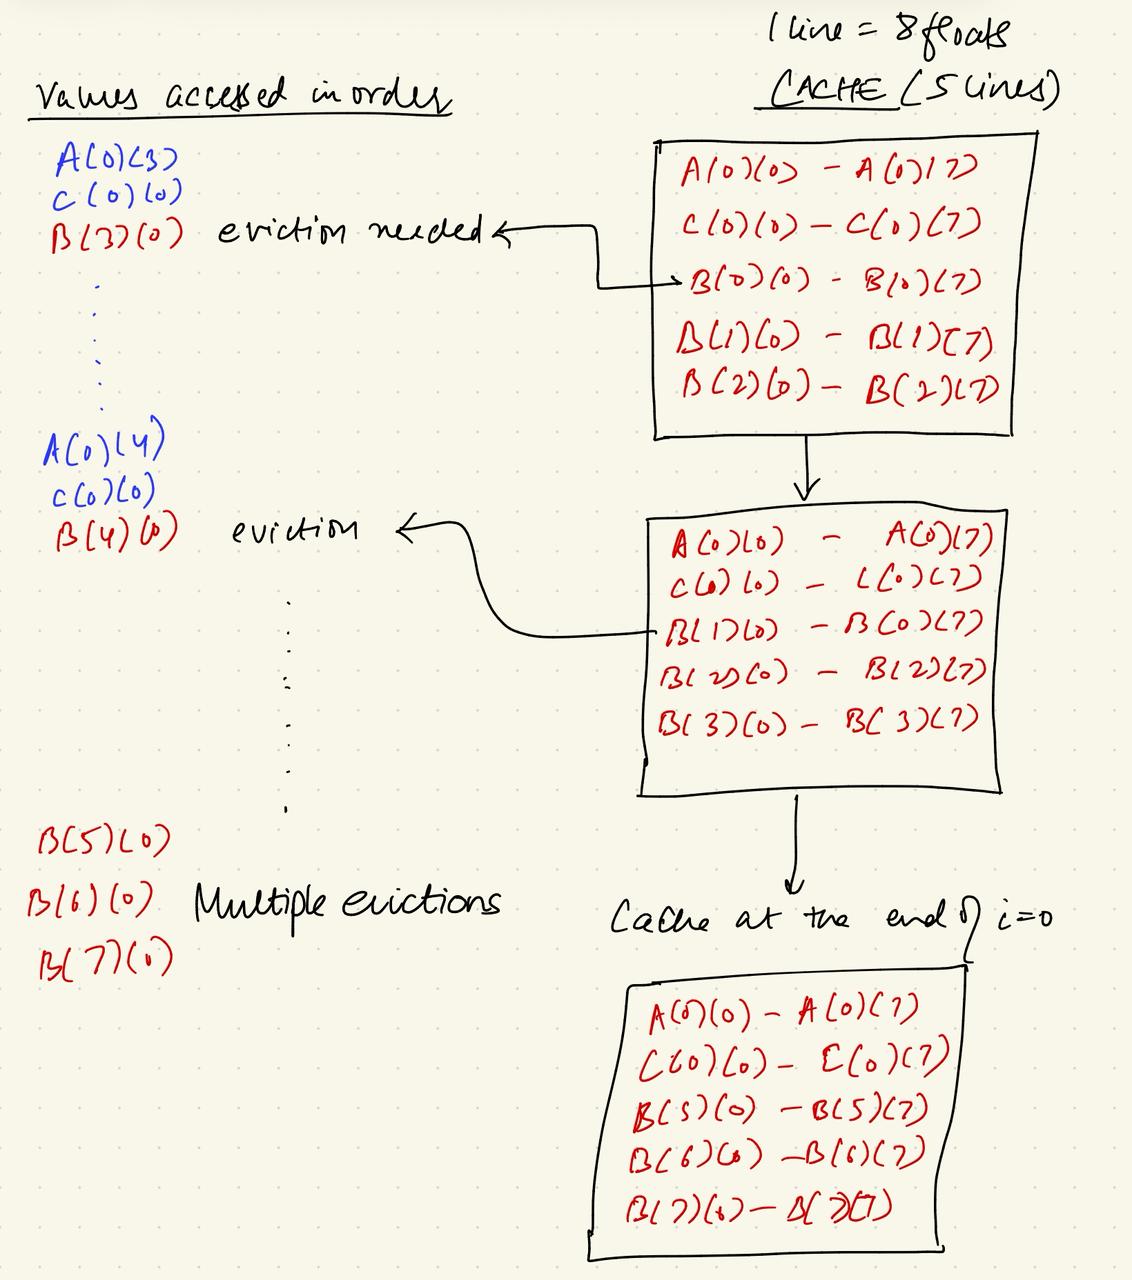 1 line = 8 floats
CACHE (5 lines)
Values accessed in order
A(0)(3)
C(0)(0)
B(3)(0) eviction needed
A(0)(0) - A(0)(7)
C(0)(0) - C(0)(7)
B(0)(0) - B(0)(7)
B(1)(0) - B(1)(7)
B(2)(0) - B(2)(7)
A(0)(4)
C(0)(0)
B(4)(0) eviction
A(0)(0) - A(0)(7)
C(0)(0) - C(0)(7)
B(1)(0) - B(0)(7)
B(2)(0) - B(2)(7)
B(3)(0) - B(3)(7)
B(5)(0)
B(6)(0) Multiple evictions
B(7)(0)
Cache at the end of i=0
A(0)(0) - A(0)(7)
C(0)(0) - C(0)(7)
B(5)(0) - B(5)(7)
B(6)(0) - B(6)(7)
B(7)(0) - B(7)(7)